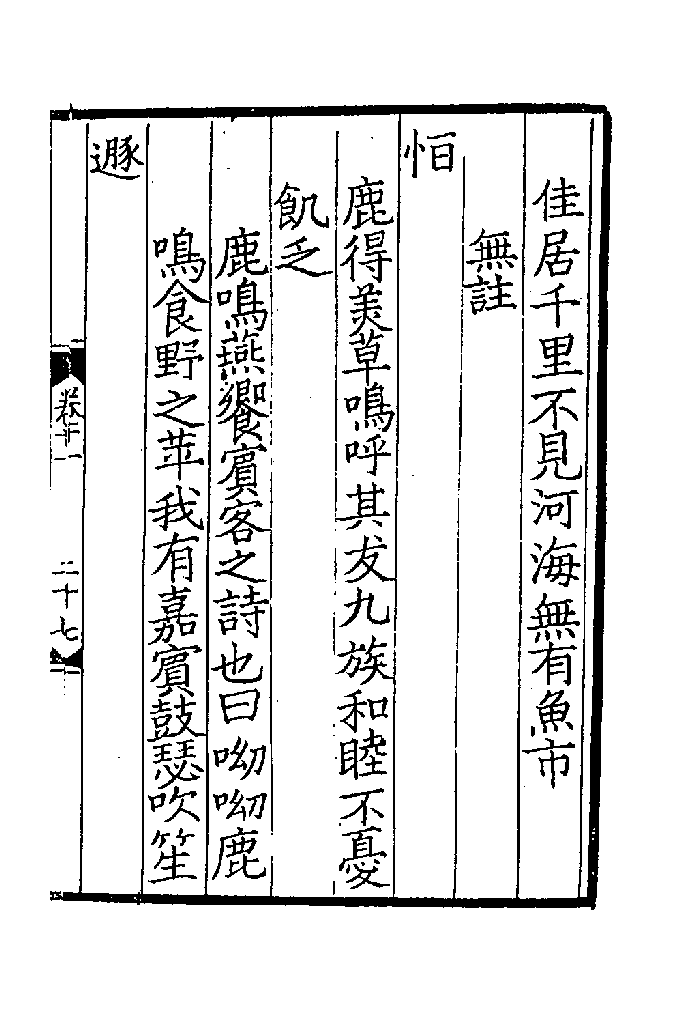 佳居千里不見河海無有魚市
無註
恒
鹿得美草鳴呼其友九族和睦不憂
飢乏
鹿鳴燕饗賓客之詩也曰呦呦鹿
鳴食野之苹我有嘉賓鼓瑟吹笙
遯
卷十一
二十七